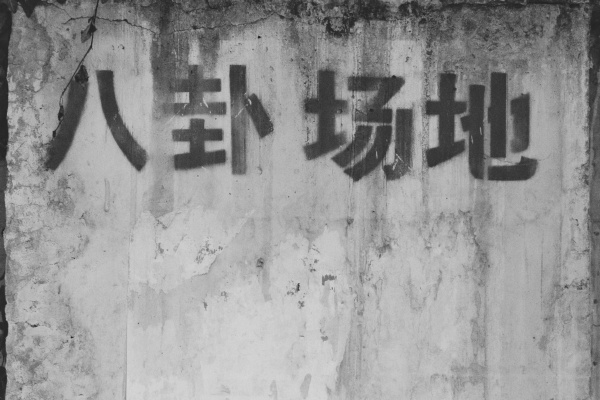 八卦场地